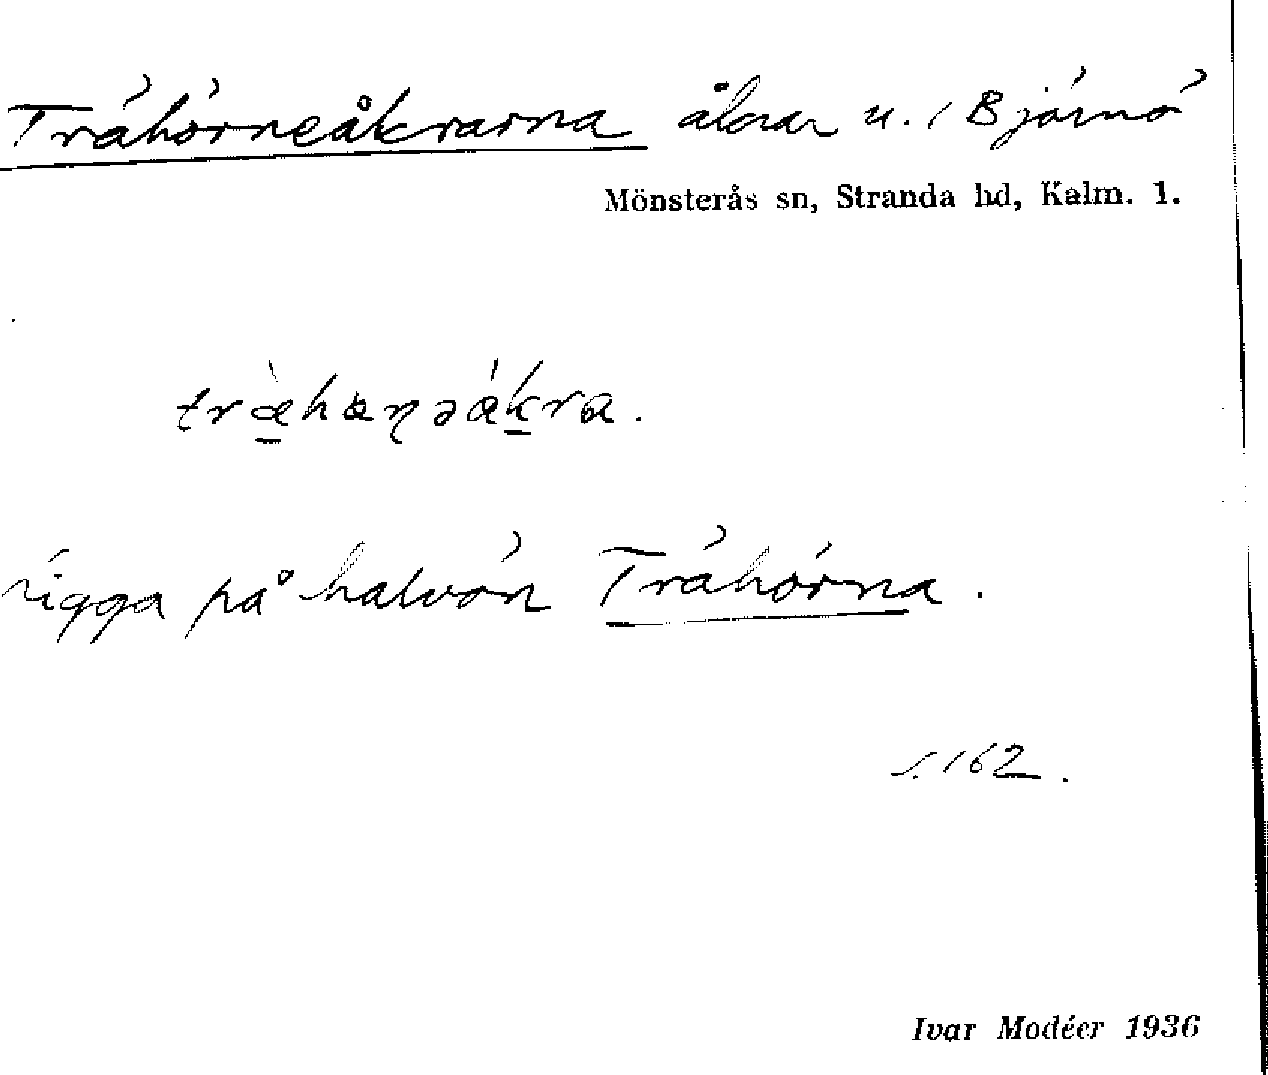 Trähörneåkrarna åkrar u. / Björnö
Mönsterås sn, Stranda hd, Kalm. l.
ligga på halvön Trähörna.
s. 162.
Ivar Modéer 1936